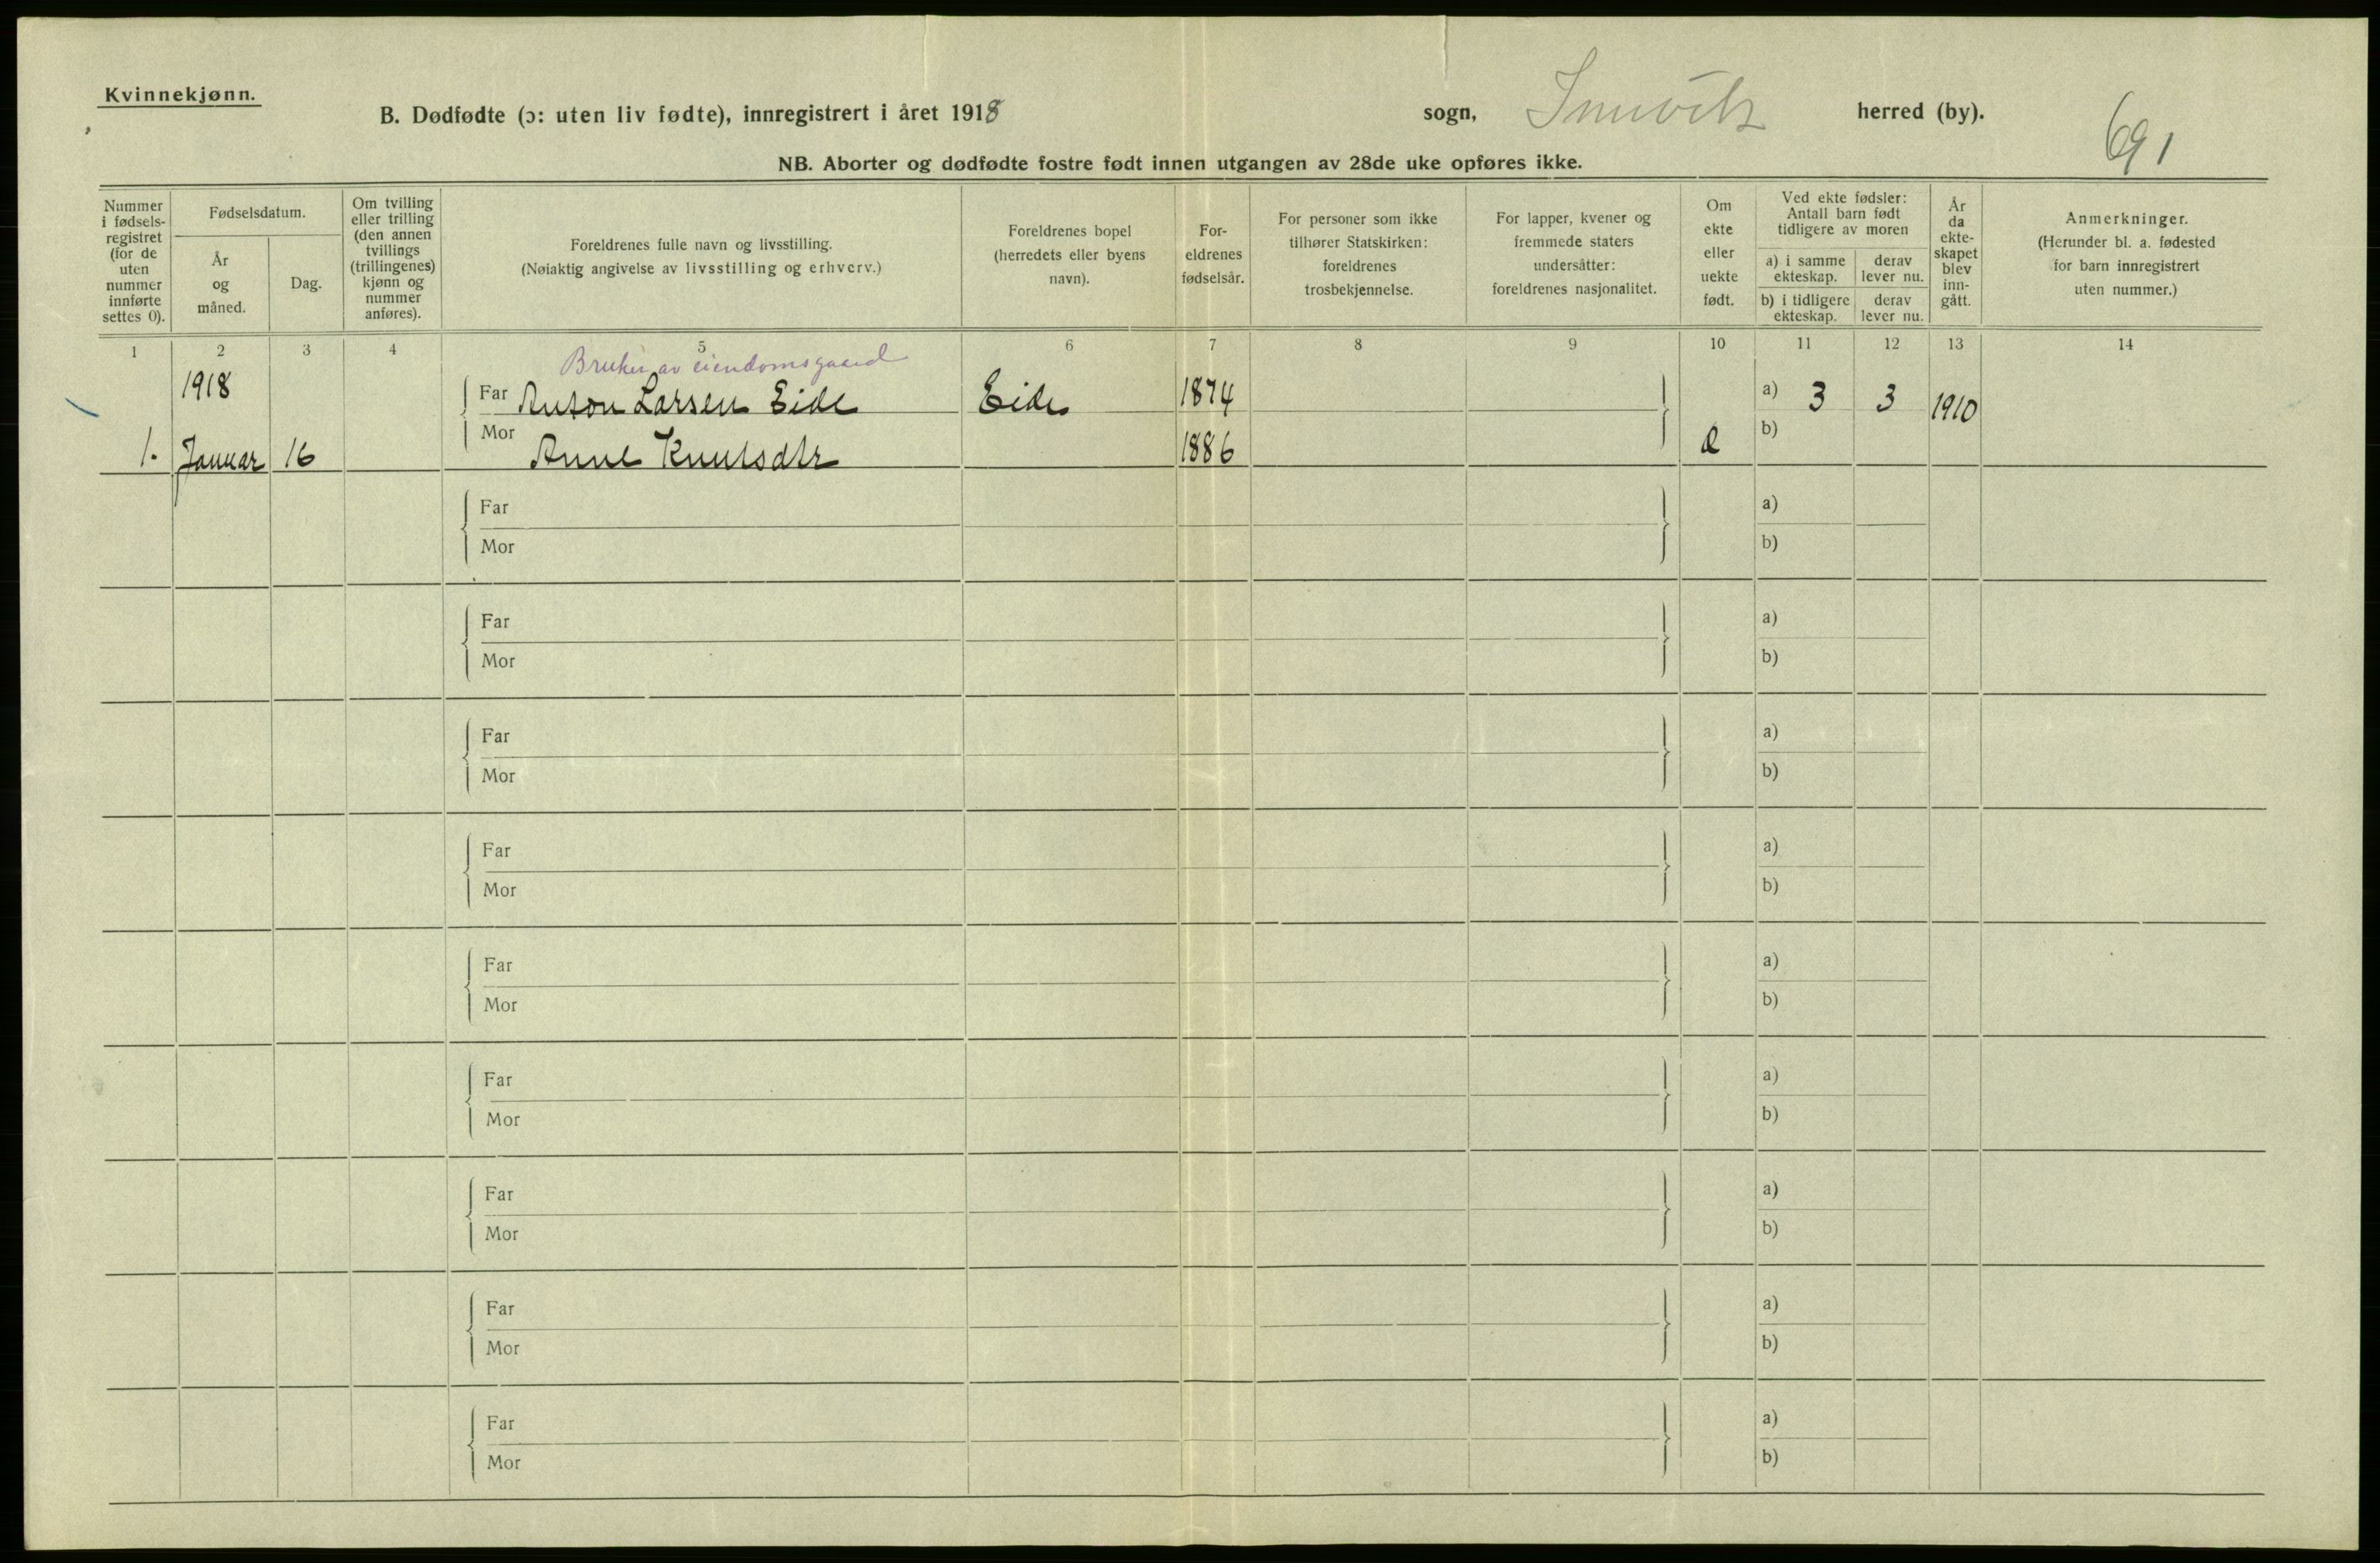 Kvinnekjønn.
B. Dødfødte (ɔ: uten liv fødte), innregistrert i året 1918 sogn, Innvik herred (by).
691
NB. Aborter og dødfødte fostre født innen utgangen av 28de uke opføres ikke.
Nummer i fødsels-registret (for de uten nummer innførte settes 0).
Fødselsdatum.
År og måned.
Dag.
Om tvilling eller trilling (den annen tvillings (trillingenes) kjønn og nummer anføres).
Foreldrenes fulle navn og livsstilling.
(Nøiaktig angivelse av livsstilling og erhverv.)
Foreldrenes bopel (herredets eller byens navn).
For-eldrenes fødselsår.
For personer som ikke tilhører Statskirken: foreldrenes trosbekjennelse.
For lapper, kvener og fremmede staters undersåtter: foreldrenes nasjonalitet.
Om ekte eller uekte født.
Ved ekte fødsler: Antall barn født tidligere av moren
a) i samme ekteskap.
derav lever nu.
b) i tidligere ekteskap.
derav lever nu.
År da ekte-skapet blev inn-gått.
Anmerkninger.
(Herunder bl. a. fødested for barn innregistrert uten nummer.)
1 2 3 4 5 6 7 8 9 10 11 12 13 14
Bruker av eiendomsgaard
1918 Far Anton Larsen Eide Eide 1874 a) 3 3 1910
1. Januar 16 Mor Anne Knutsdtr 1886 e b)
Far a)
Mor b)
Far a)
Mor b)
Far a)
Mor b)
Far a)
Mor b)
Far a)
Mor b)
Far a)
Mor b)
Far a)
Mor b)
Far a)
Mor b)
Far a)
Mor b)